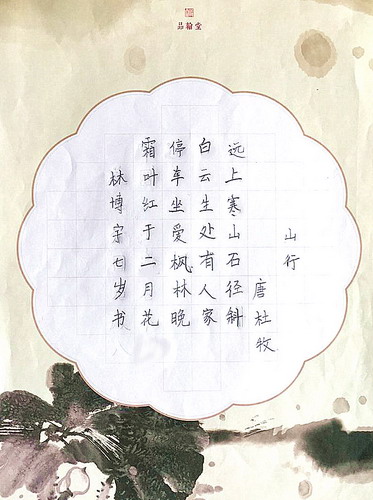 品翰堂
山行
唐杜牧
远上寒山石径斜
白云生处有人家
停车坐爱枫林晚
霜叶红于二月花
林博宇七岁书